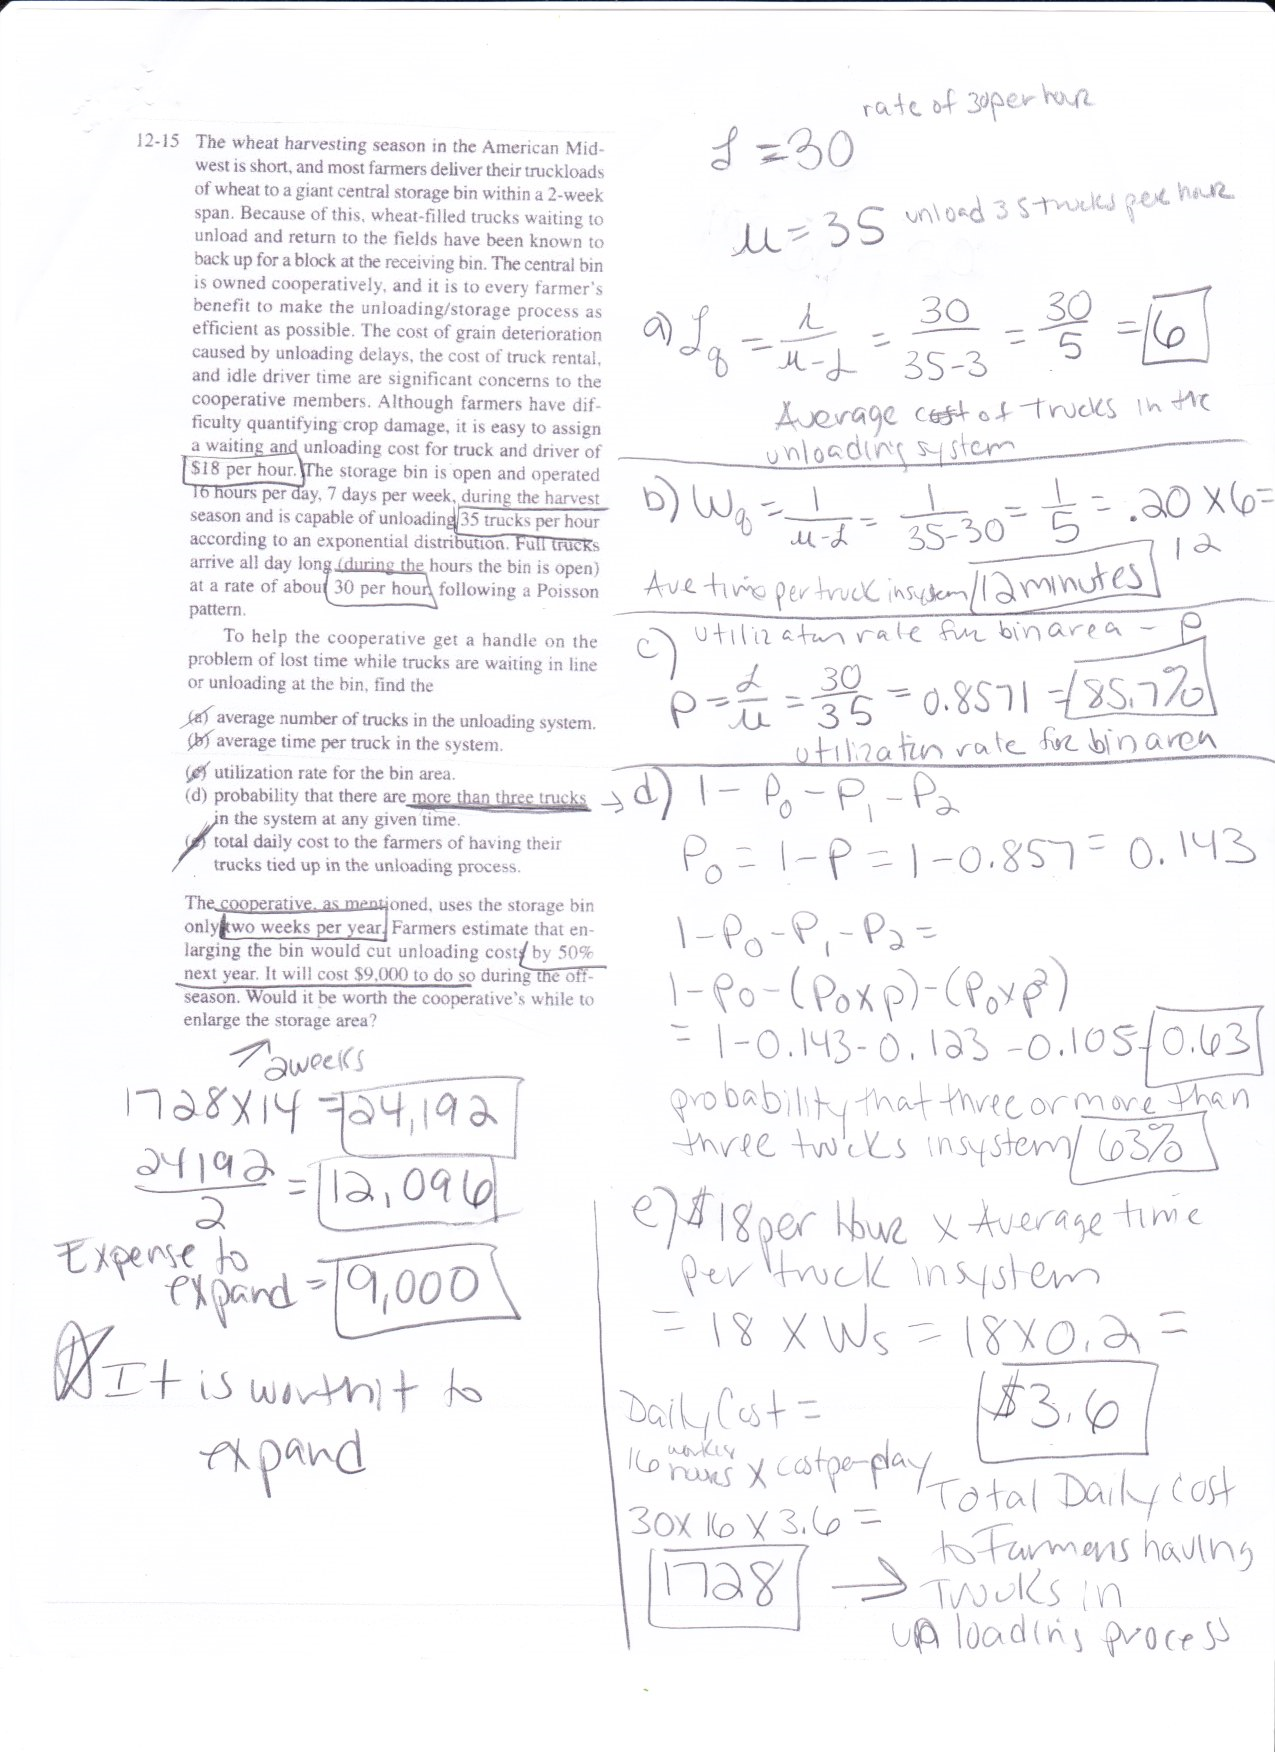 12-15 The wheat harvesting season in the American Mid-
west is short, and most farmers deliver their truckloads
of wheat to a giant central storage bin within a 2-week
span. Because of this, wheat-filled trucks waiting to
unload and return to the fields have been known to
back up for a block at the receiving bin. The central bin
is owned cooperatively, and it is to every farmer's
benefit to make the unloading/storage process as
efficient as possible. The cost of grain deterioration
caused by unloading delays, the cost of truck rental,
and idle driver time are significant concerns to the
cooperative members. Although farmers have dif-
ficulty quantifying crop damage, it is easy to assign
a waiting and unloading cost for truck and driver of
$18 per hour. The storage bin is open and operated
16 hours per day, 7 days per week, during the harvest
season and is capable of unloading 35 trucks per hour
according to an exponential distribution. Full trucks
arrive all day long (during the hours the bin is open)
at a rate of about 30 per hour, following a Poisson
pattern.
To help the cooperative get a handle on the
problem of lost time while trucks are waiting in line
or unloading at the bin, find the
(a) average number of trucks in the unloading system.
(b) average time per truck in the system.
(c) utilization rate for the bin area.
(d) probability that there are more than three trucks
in the system at any given time.
(e) total daily cost to the farmers of having their
trucks tied up in the unloading process.
The cooperative, as mentioned, uses the storage bin
only two weeks per year. Farmers estimate that en-
larging the bin would cut unloading costs by 50%
next year. It will cost $9,000 to do so during the off-
season. Would it be worth the cooperative's while to
enlarge the storage area?
2weeks
1728 X 14 = 24,192
24192/2 = 12,096
Expense to
expand = 9,000
It is worth it to
expand
rate of 30 per hour
L = 30
μ = 35 unload 35 trucks per hour
a) Lq = λ/μ-L = 30/35-3 = 30/5 = 6
Average cost of trucks in the
unloading system
b) Wq = 1/μ-L = 1/35-30 = 1/5 = .20 X 6 =
12
Ave time per truck in system 12 minutes
c) Utilization rate for bin area - P
P = L/μ = 30/35 = 0.8571 = 85.7%
utilization rate for bin area
d) 1 - P0 - P1 - P2
P0 = 1 - P = 1 - 0.857 = 0.143
1 - P0 - P1 - P2 =
1 - P0 - (P0 x p) - (P0 x p²)
= 1 - 0.143 - 0.123 - 0.105 = 0.63
probability that three or more than
three trucks in system 63%
e) $18 per Hour x Average time
per truck in system
= 18 X Ws = 18 X 0.2 =
$3.6
Daily Cost =
16 hours X cost per play
30 X 16 X 3.6 =
1728 →
Total Daily cost
to Farmers having
Trucks in
unloading process